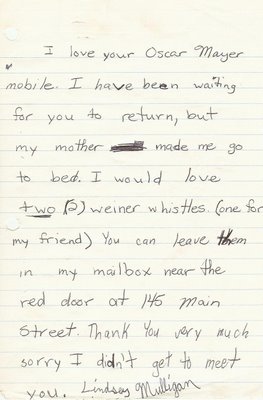 I love your Oscar Mayer
mobile. I have been waiting
for you to return, but
my mother made me go
to bed. I would love
two (2) weiner whistles. (one for
my friend) You can leave them
in my mailbox near the
red door at 145 Main
Street. Thank You very much
sorry I didn't get to meet
you. Lindsay Mulligan